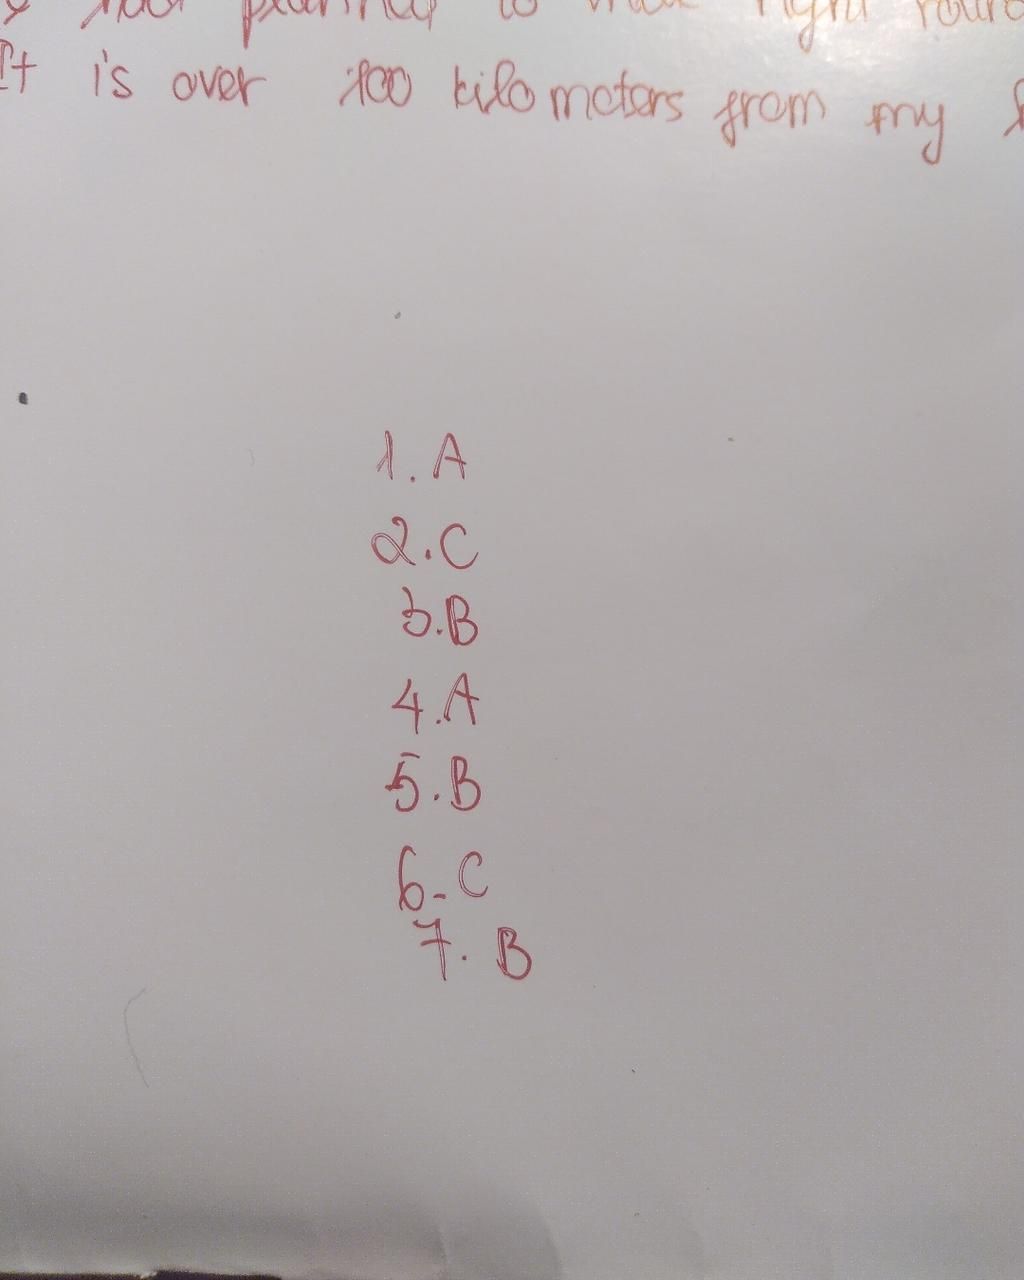 planned to
It is over 100 kilometers from my
1. A
2. C
3. B
4. A
5. B
6. C
7. B